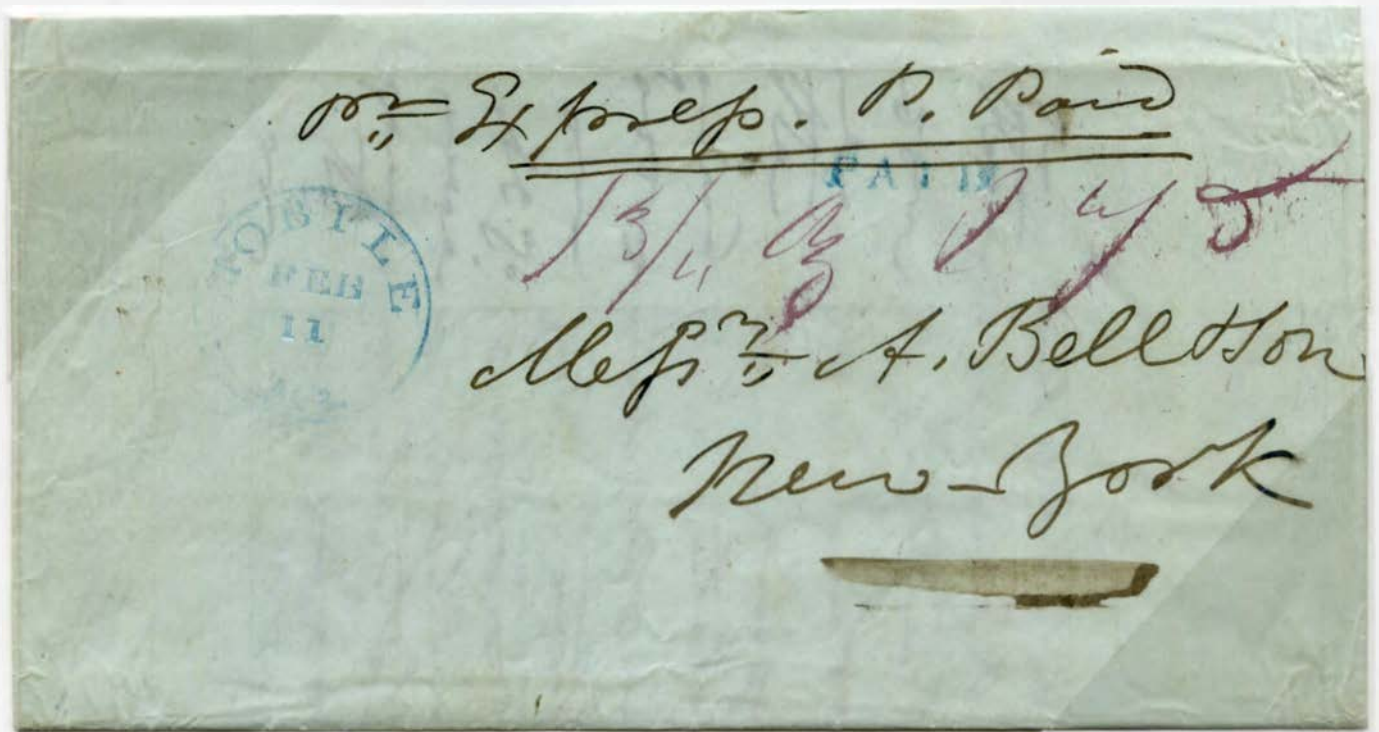 pr Express. P. Paid
PAID
MOBILE
FEB
11
Messrs A. Bell & Son
New-York